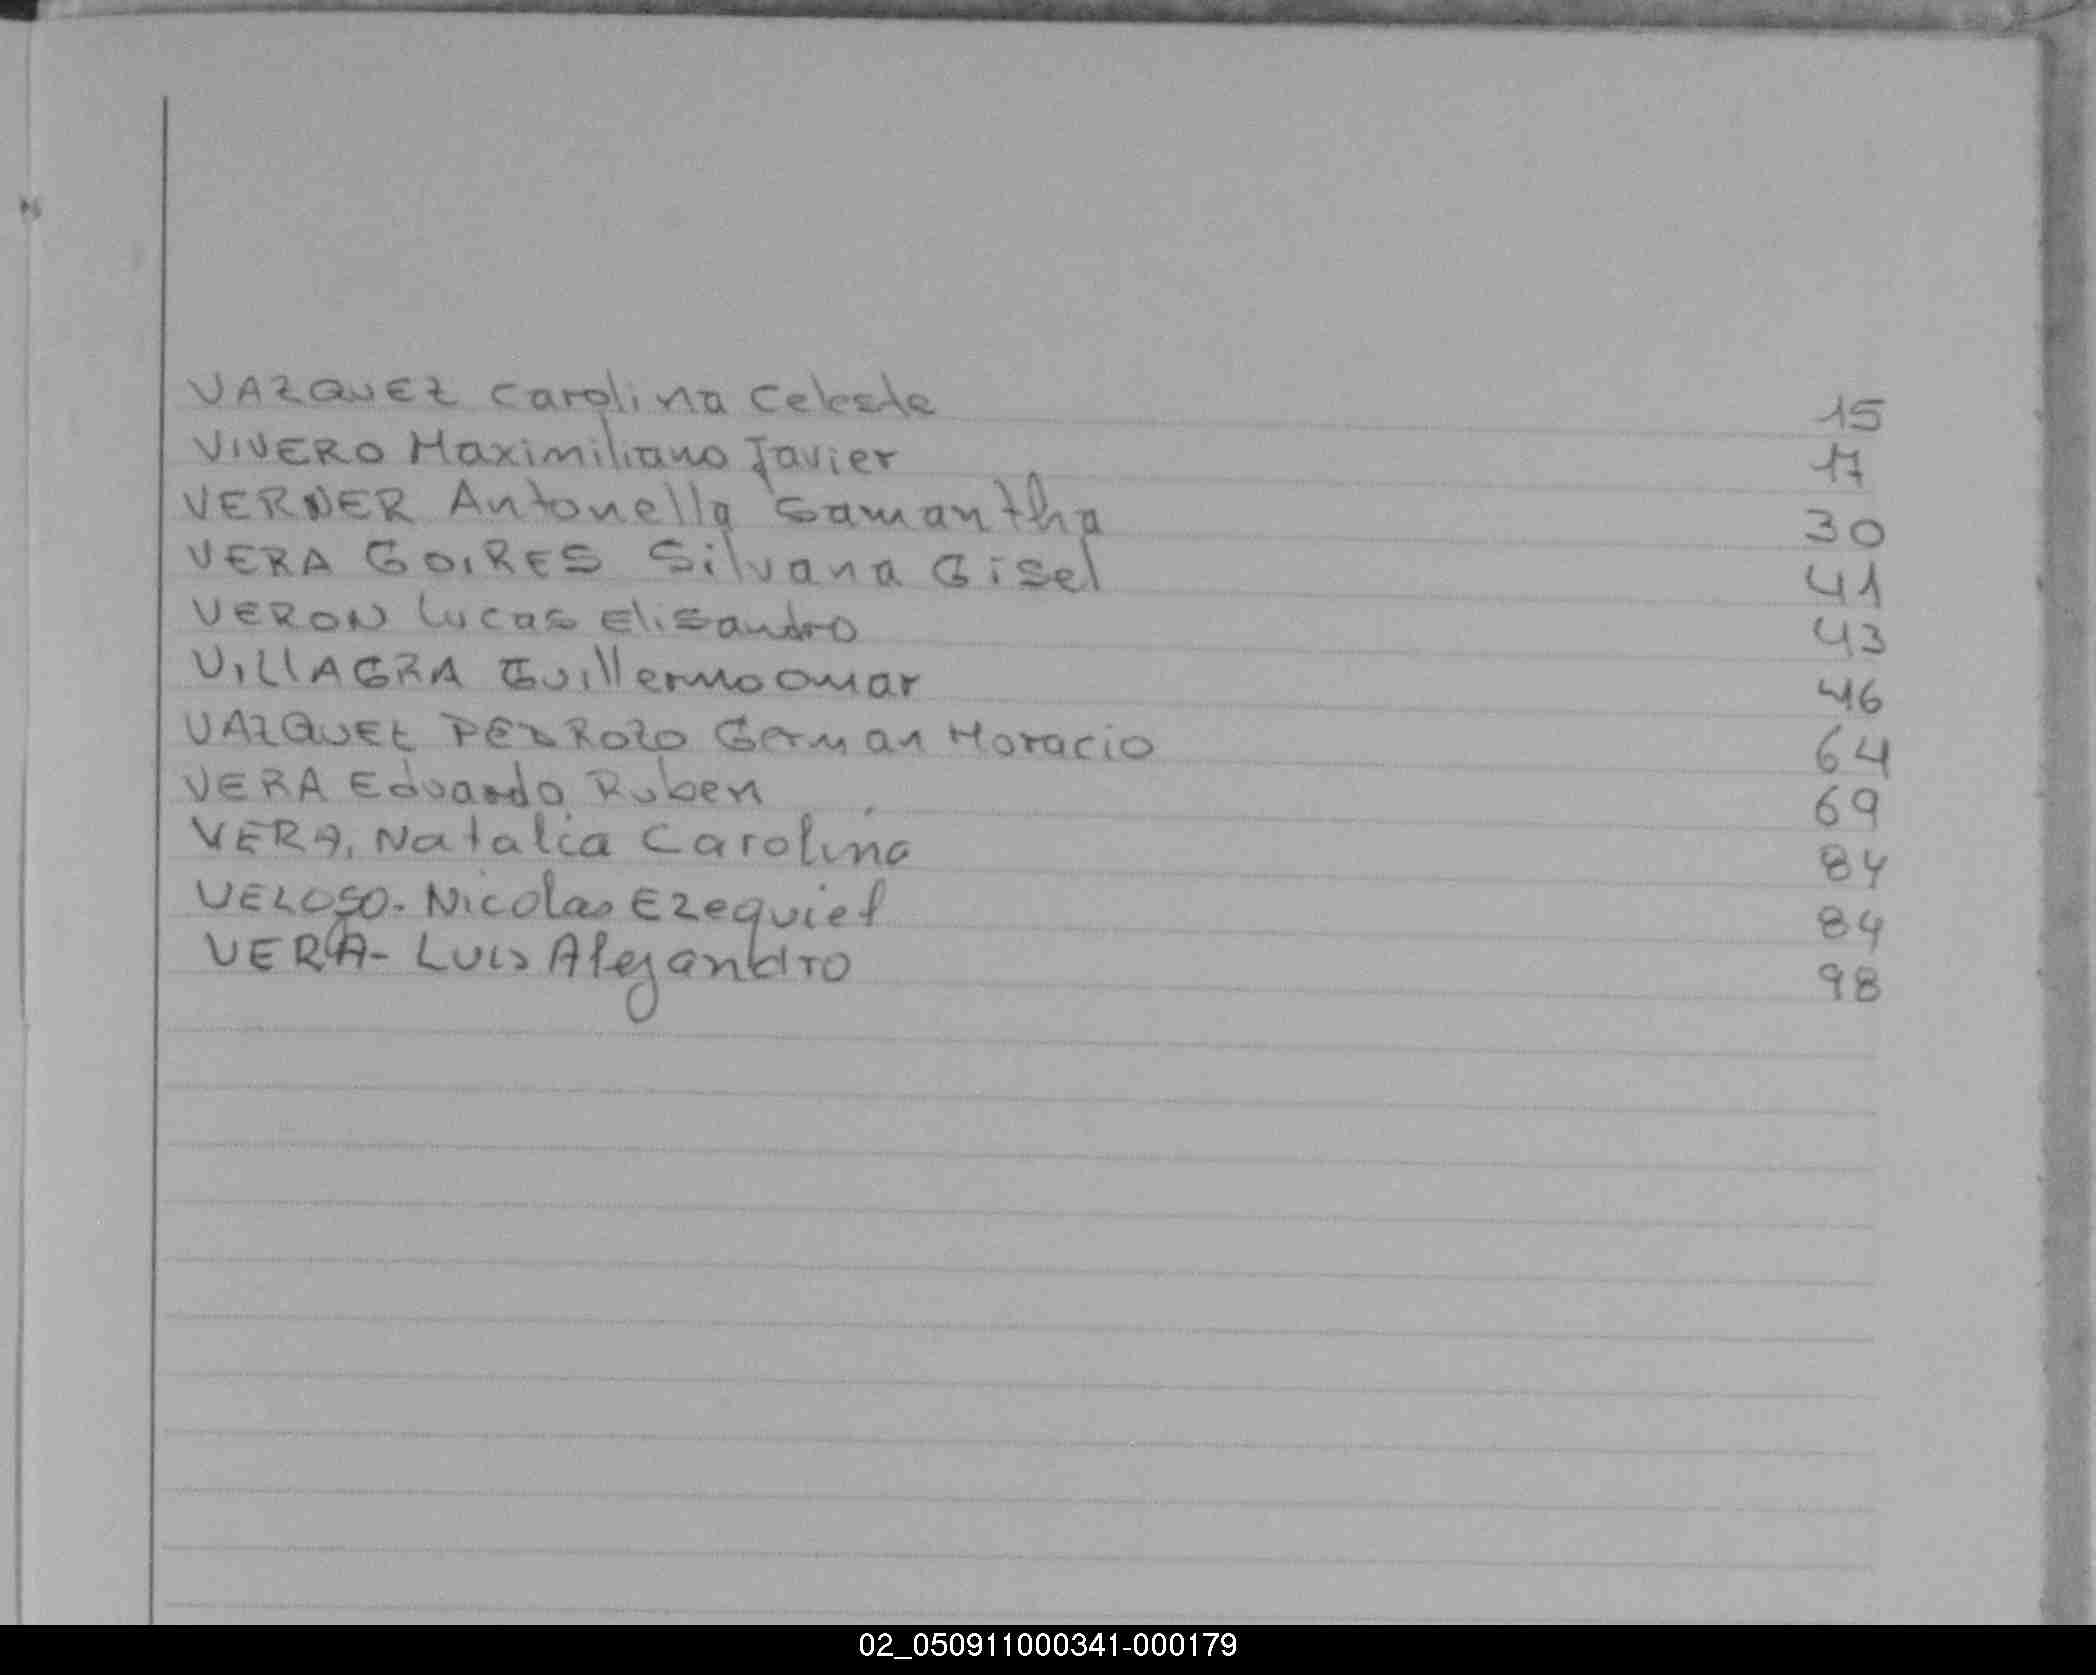 VAZQUEZ Carolina Celeste 15
VIVERO Maximiliano Javier 17
VERNER Antonella Samantha 30
VERA GOIRES Silvana Gisel 41
VERON Lucas Elisandro 43
VILLAGRA Guillermo Omar 46
VAZQUEZ PEDROZO German Horacio 64
VERA Eduardo Ruben 69
VERA, Natalia Carolina 84
VELOSO. Nicolas Ezequiel 84
VERA- Luis Alejandro 98
02_050911000341-000179